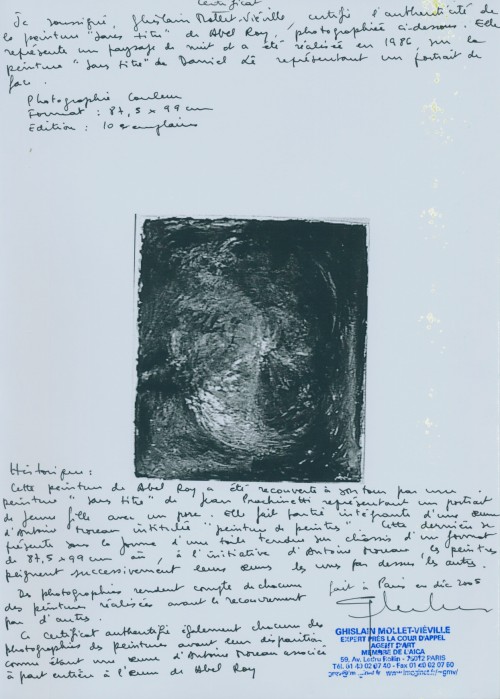 Certificat
Je soussigné, Ghislain Mollet-Viéville, certifie l'authenticité de
la peinture "sans titre" de Abel Roy, photographiée ci-dessous. Elle
représente un paysage de nuit et a été réalisée en 1986, sur la
peinture "sans titre" de Daniel représentant un portrait de
face.
Photographie Couleur
Format : 87,5 x 99 cm
Edition : 10 exemplaires
Historique :
Cette peinture de Abel Roy a été recouverte à son tour par une
peinture "sans titre" de Jean représentant un portrait
de jeune fille avec un. Elle fait partie intégrante d'une œuvre
d'Antoine Moreau intitulée "peinture de peintres". Cette dernière se
présente sous la forme d'une toile tendue sur châssis d'un format
de 87,5 x 99 cm où, à l'initiative d'Antoine Moreau les peintres
peignent successivement leurs œuvres les uns par dessus les autres.
Des photographies rendent compte de chacune
des peintures réalisées avant le recouvrement
par d'autres.
Ce certificat authentifie également chacune des
photographies des peintures avant leur disparition
comme étant une œuvre d'Antoine Moreau associée
à part entière à l'œuvre de Abel Roy
fait à Paris en déc 2005
GHISLAIN MOLLET-VIÉVILLE
EXPERT PRÈS LA COUR D'APPEL
AGENT D'ART
MEMBRE DE L'AICA
59, Av. Ledru Rollin - 75012 PARIS
Tél. 01 43 02 07 40 - Fax 01 40 02 07 60